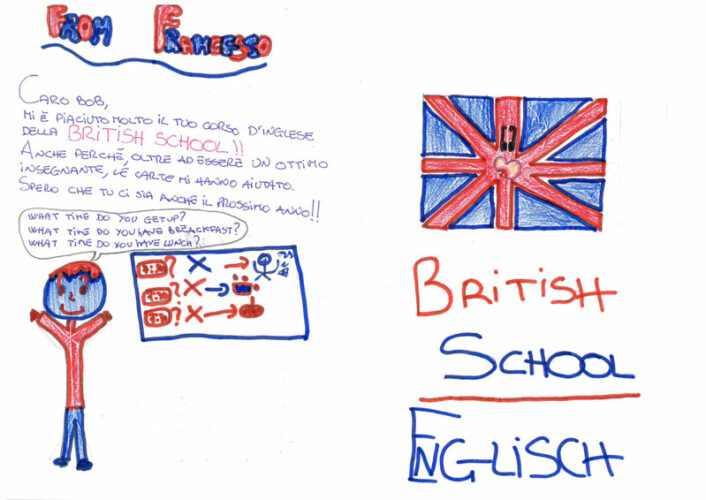 FROM FRANCESCO
CARO BOB,
MI È PIACIUTO MOLTO IL TUO CORSO D'INGLESE
DELLA BRITISH SCHOOL!!
ANCHE PERCHÉ, OLTRE AD ESSERE UN OTTIMO
INSEGNANTE, LE CARTE MI HANNO AIUTATO.
SPERO CHE TU CI SIA ANCHE IL PROSSIMO ANNO!!
WHAT TIME DO YOU GETUP?
WHAT TIME DO YOU HAVE BREACKFAST?
WHAT TIME DO YOU HAVE LUNCH?
? X
? X
? X
BRITISH
SCHOOL
ENGLISCH